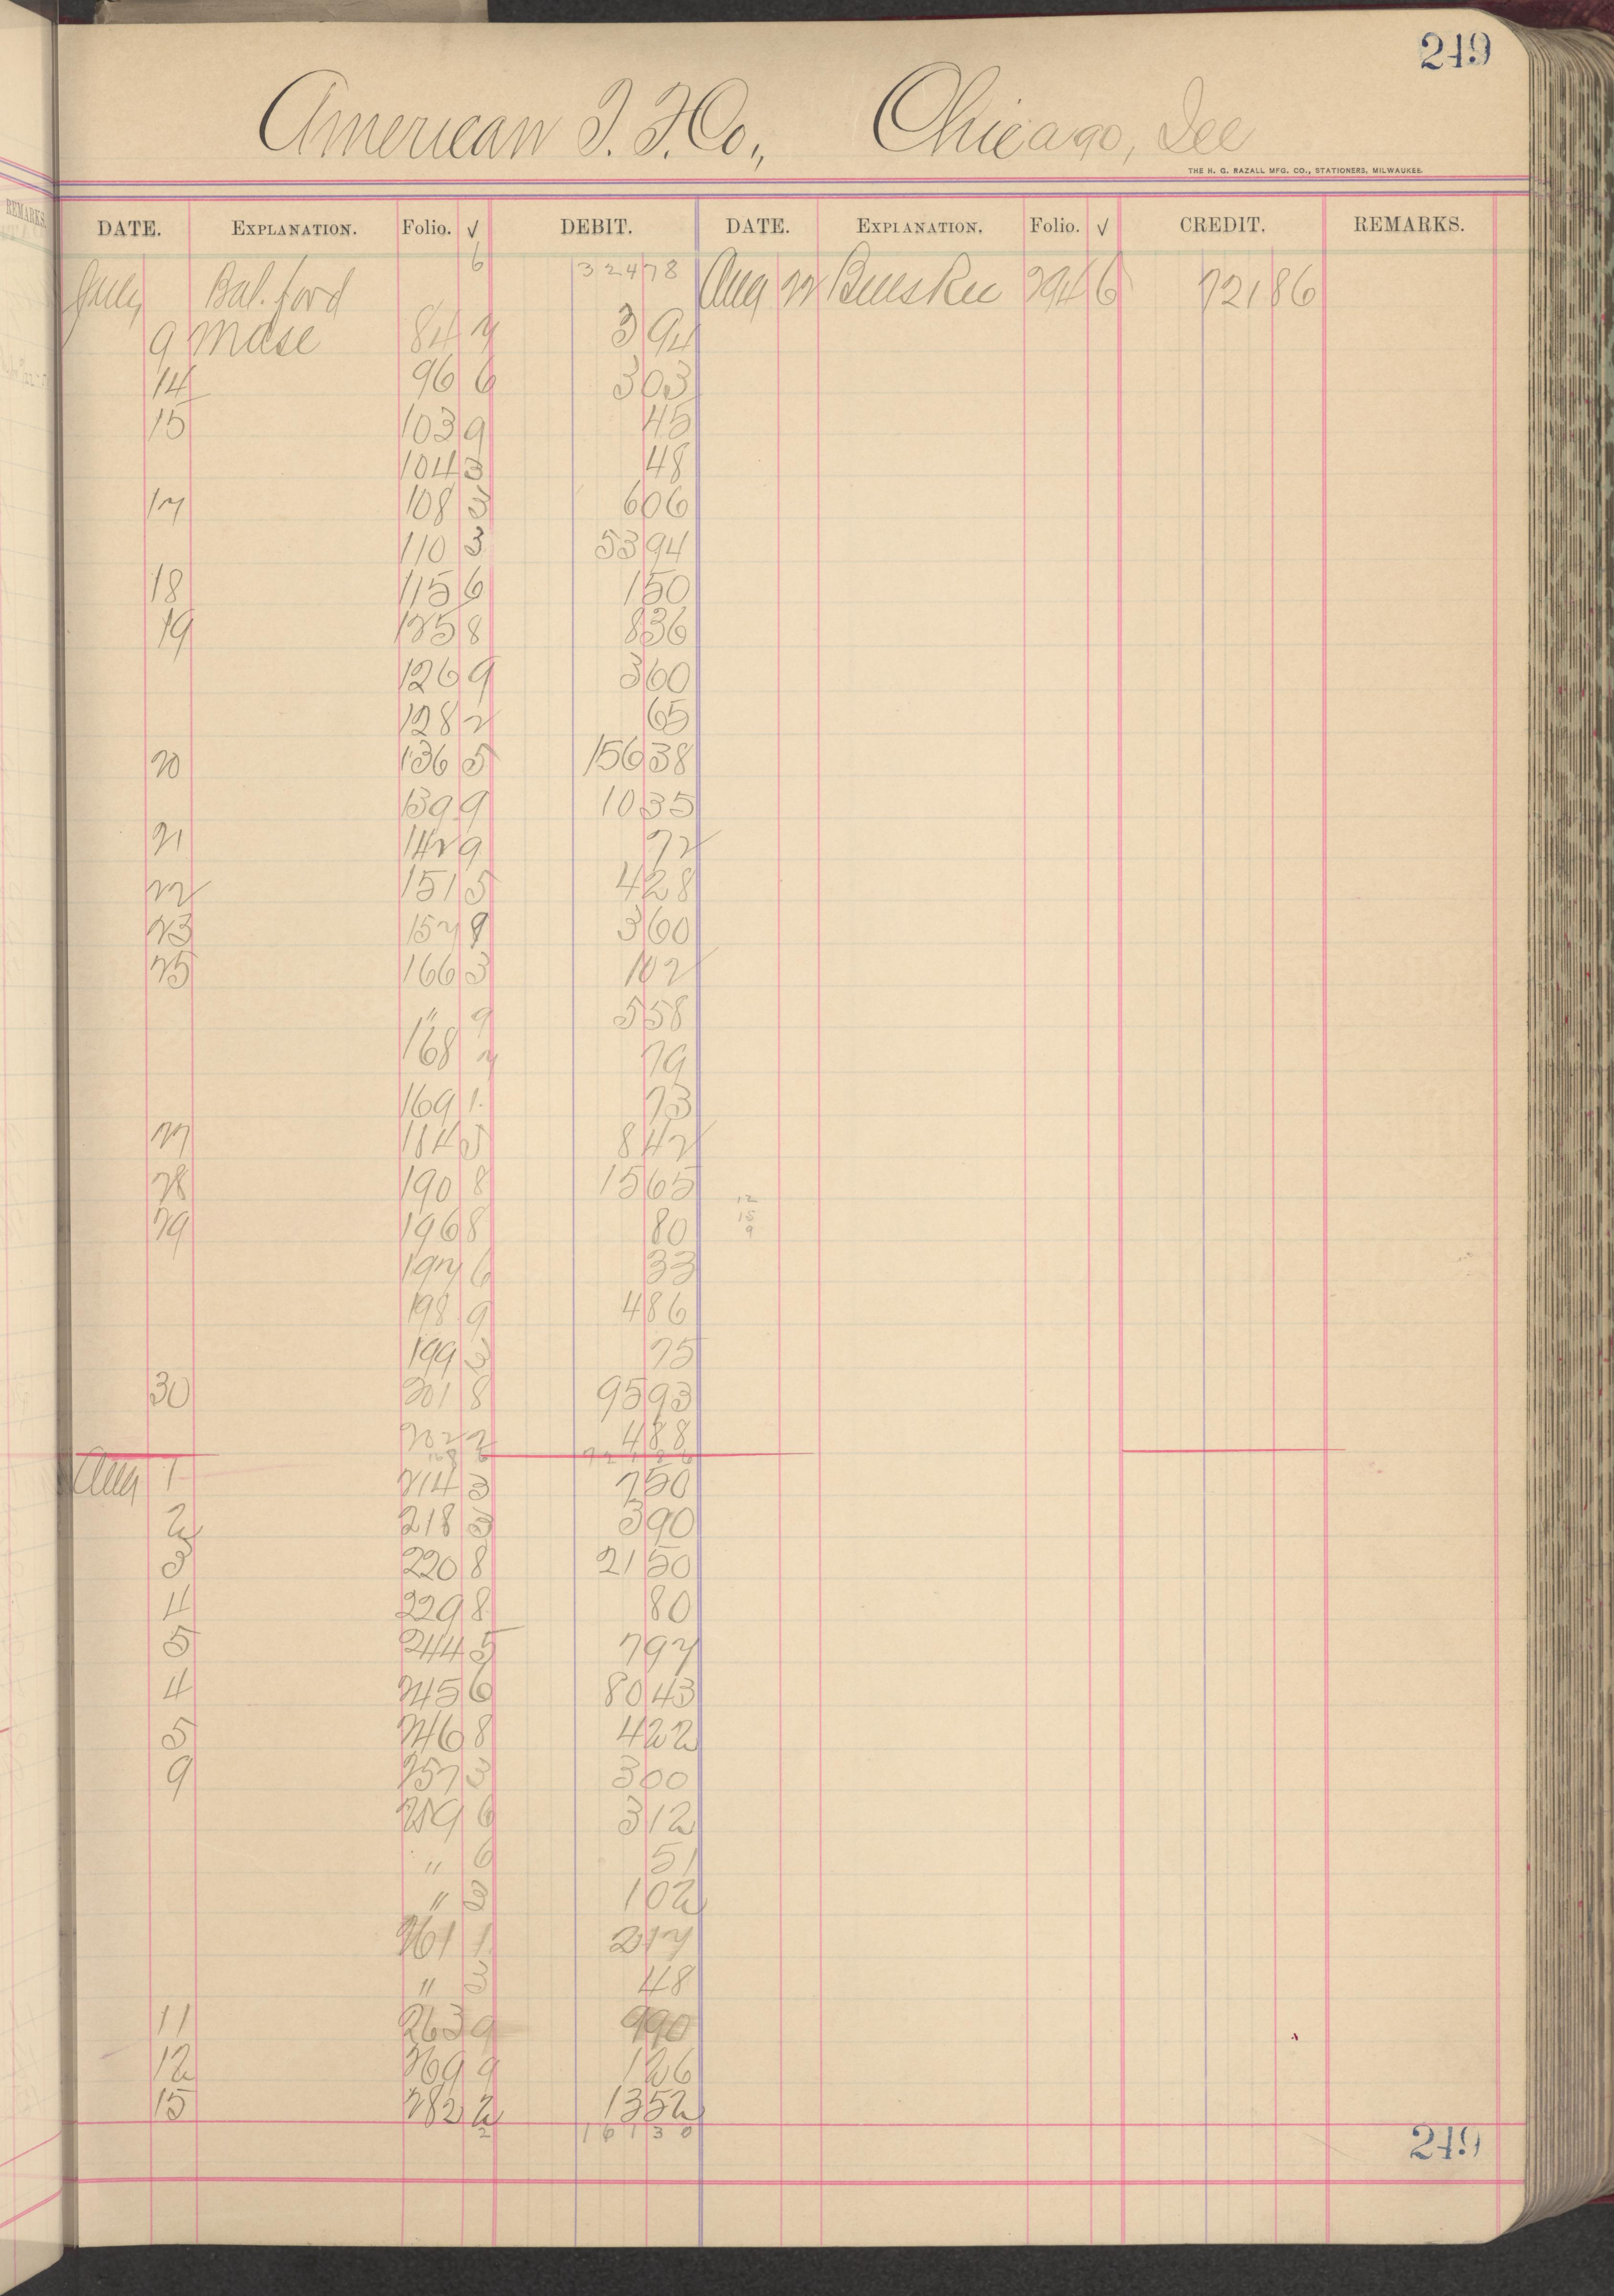 249
American I. F. Co., Chicago, Ill
THE H. G. RAZALL MFG. CO., STATIONERS, MILWAUKEE
REMARKS.
DATE. EXPLANATION. Folio. √ DEBIT. DATE. EXPLANATION. Folio. √ CREDIT. REMARKS.
July Bal. ford 6 324 78 Aug 22 294 6 721 86
9 Mdse 84 7 3 94
14 96 6 3 03
15 103 9 45
104 3 48
17 108 3 6 06
110 3 53 94
18 115 6 1 50
19 125 8 8 36
126 9 3 60
128 2 65
20 136 5 156 38
139 9 10 35
21 142 9 72
22 151 5 4 28
23 157 9 3 60
25 166 3 1 02
" 9 5 58
168 7 79
169 1 73
27 184 5 8 42
28 190 8 15 65
12
15
9
29 196 8 80
197 6 33
198 9 4 86
199 3 75
30 201 8 95 93
202 2 4 88
721 86
Aug 1 214 3 2 50
2 218 3 3 90
3 220 8 21 50
4 229 8 80
5 244 5 7 97
4 245 6 80 43
5 246 8 4 22
9 257 3 3 00
259 6 3 12
" 6 51
" 3 1 02
261 1 2 17
" 3 48
11 263 9 9 90
12 269 9 1 26
15 282 2 13 52
2 161 30
249